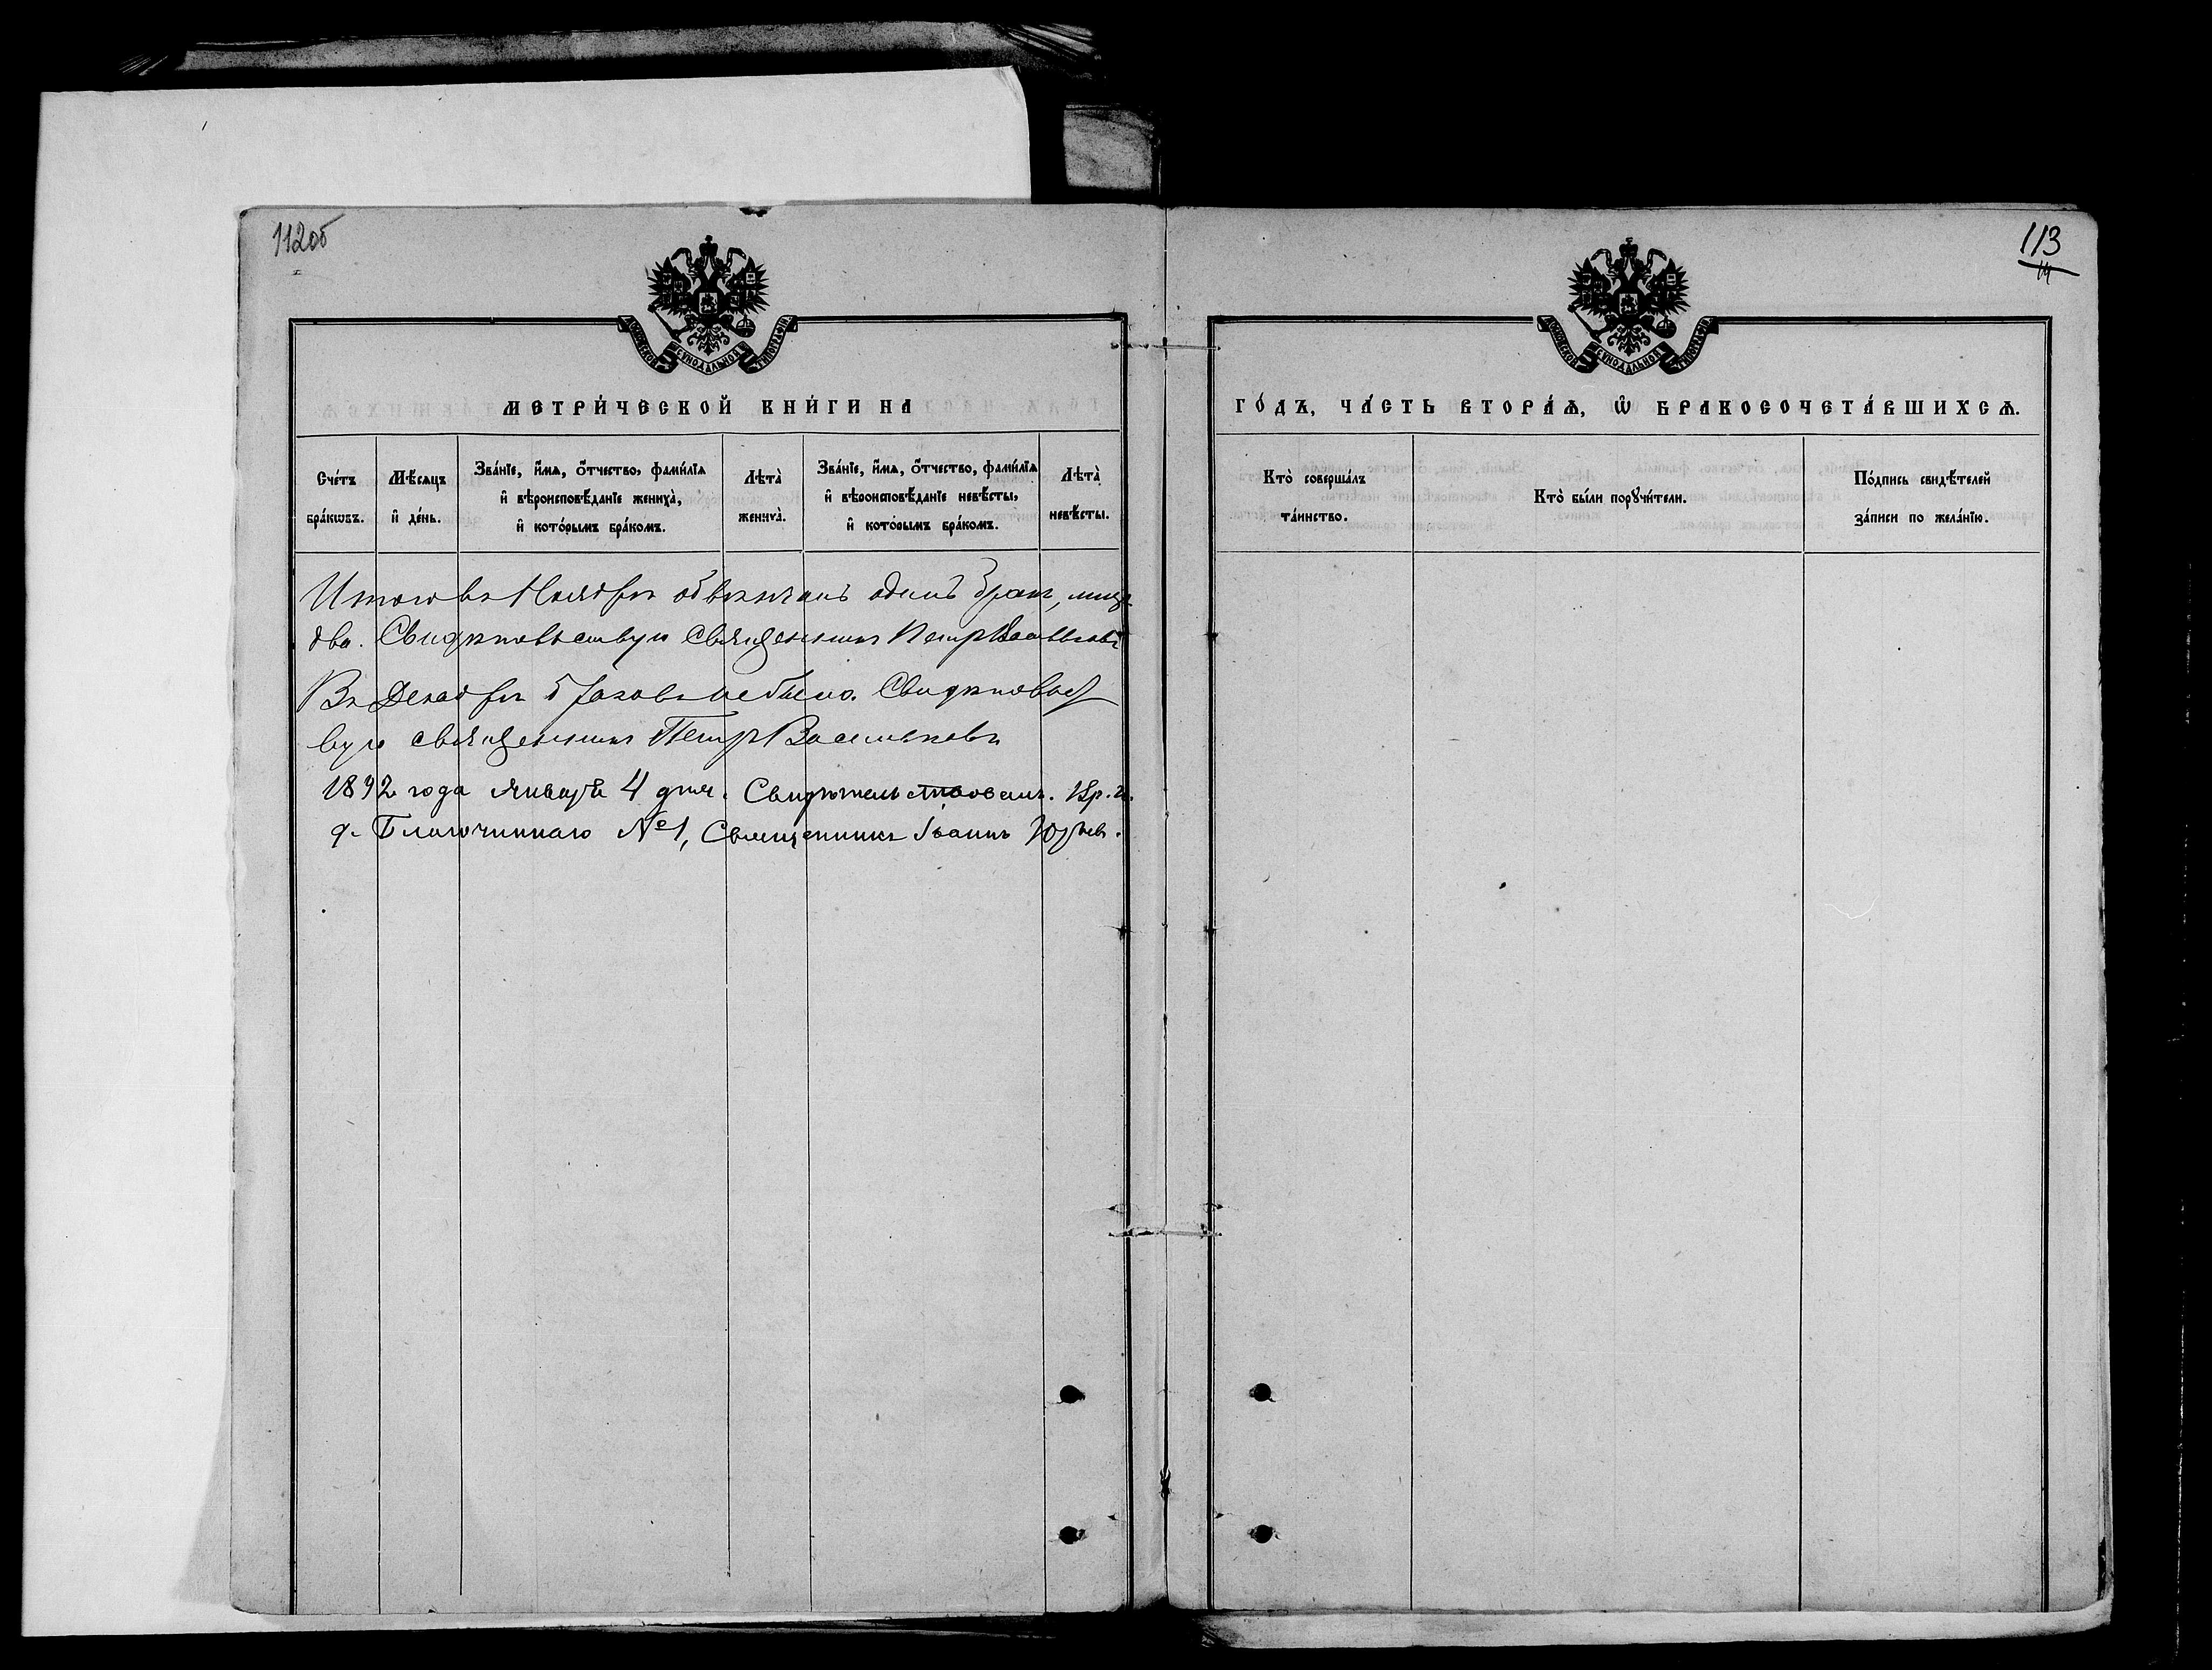 112об
113
МОСКОВСКОЙ СѴНОДАЛЬНОЙ ТИПОГРАФІИ
МЕТРИ́ЧЕСКОЙ КНИ́ГИ НА
Сче́тъ бра́кωвъ.
Мѣ́сяцъ и҆ де́нь.
Зва́нїе, и҆́мѧ, ѻ҆́тчество, фами́лїѧ и҆ вѣроисповѣ́данїе жениха̀, и҆ кото́рымъ бра́комъ.
Лѣта̀ жениха̀.
Зва́нїе, и҆́мѧ, ѻ҆́тчество, фами́лїѧ и҆ вѣроисповѣ́данїе невѣ́сты, и҆ кото́рымъ бра́комъ.
Лѣта̀ невѣ́сты.
Итого въ Ноябрѣ обвѣнчанъ одинъ бракъ, лицъ
два. Свидѣтельствую Священникъ Петръ Васильковъ
Въ Декабрѣ браковъ не было. Свидѣтельст
вую священникъ Петръ Васильковъ
1892 года Января 4 дня. Свидѣтельствовалъ. И.
д. Благочиннаго №1, Священникъ Іоаннъ Юрьев.
МОСКОВСКОЙ СѴНОДАЛЬНОЙ ТИПОГРАФІИ
ГО́ДЪ, ЧА́СТЬ ВТОРА́Ѧ, Ѽ БРАКОСОЧЕТА́ВШИХСѦ.
Кто̀ соверша́лъ та́инство.
Кто̀ бы́ли порꙋчи́тели.
По́дпись свидѣ́телей за́писи по жела́нїю.